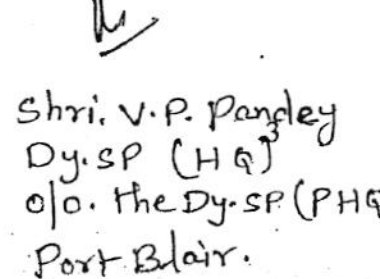 Shri. V.P. Pandey
Dy.SP (HQ)
o/o. the Dy.SP (PHQ
Port Blair.